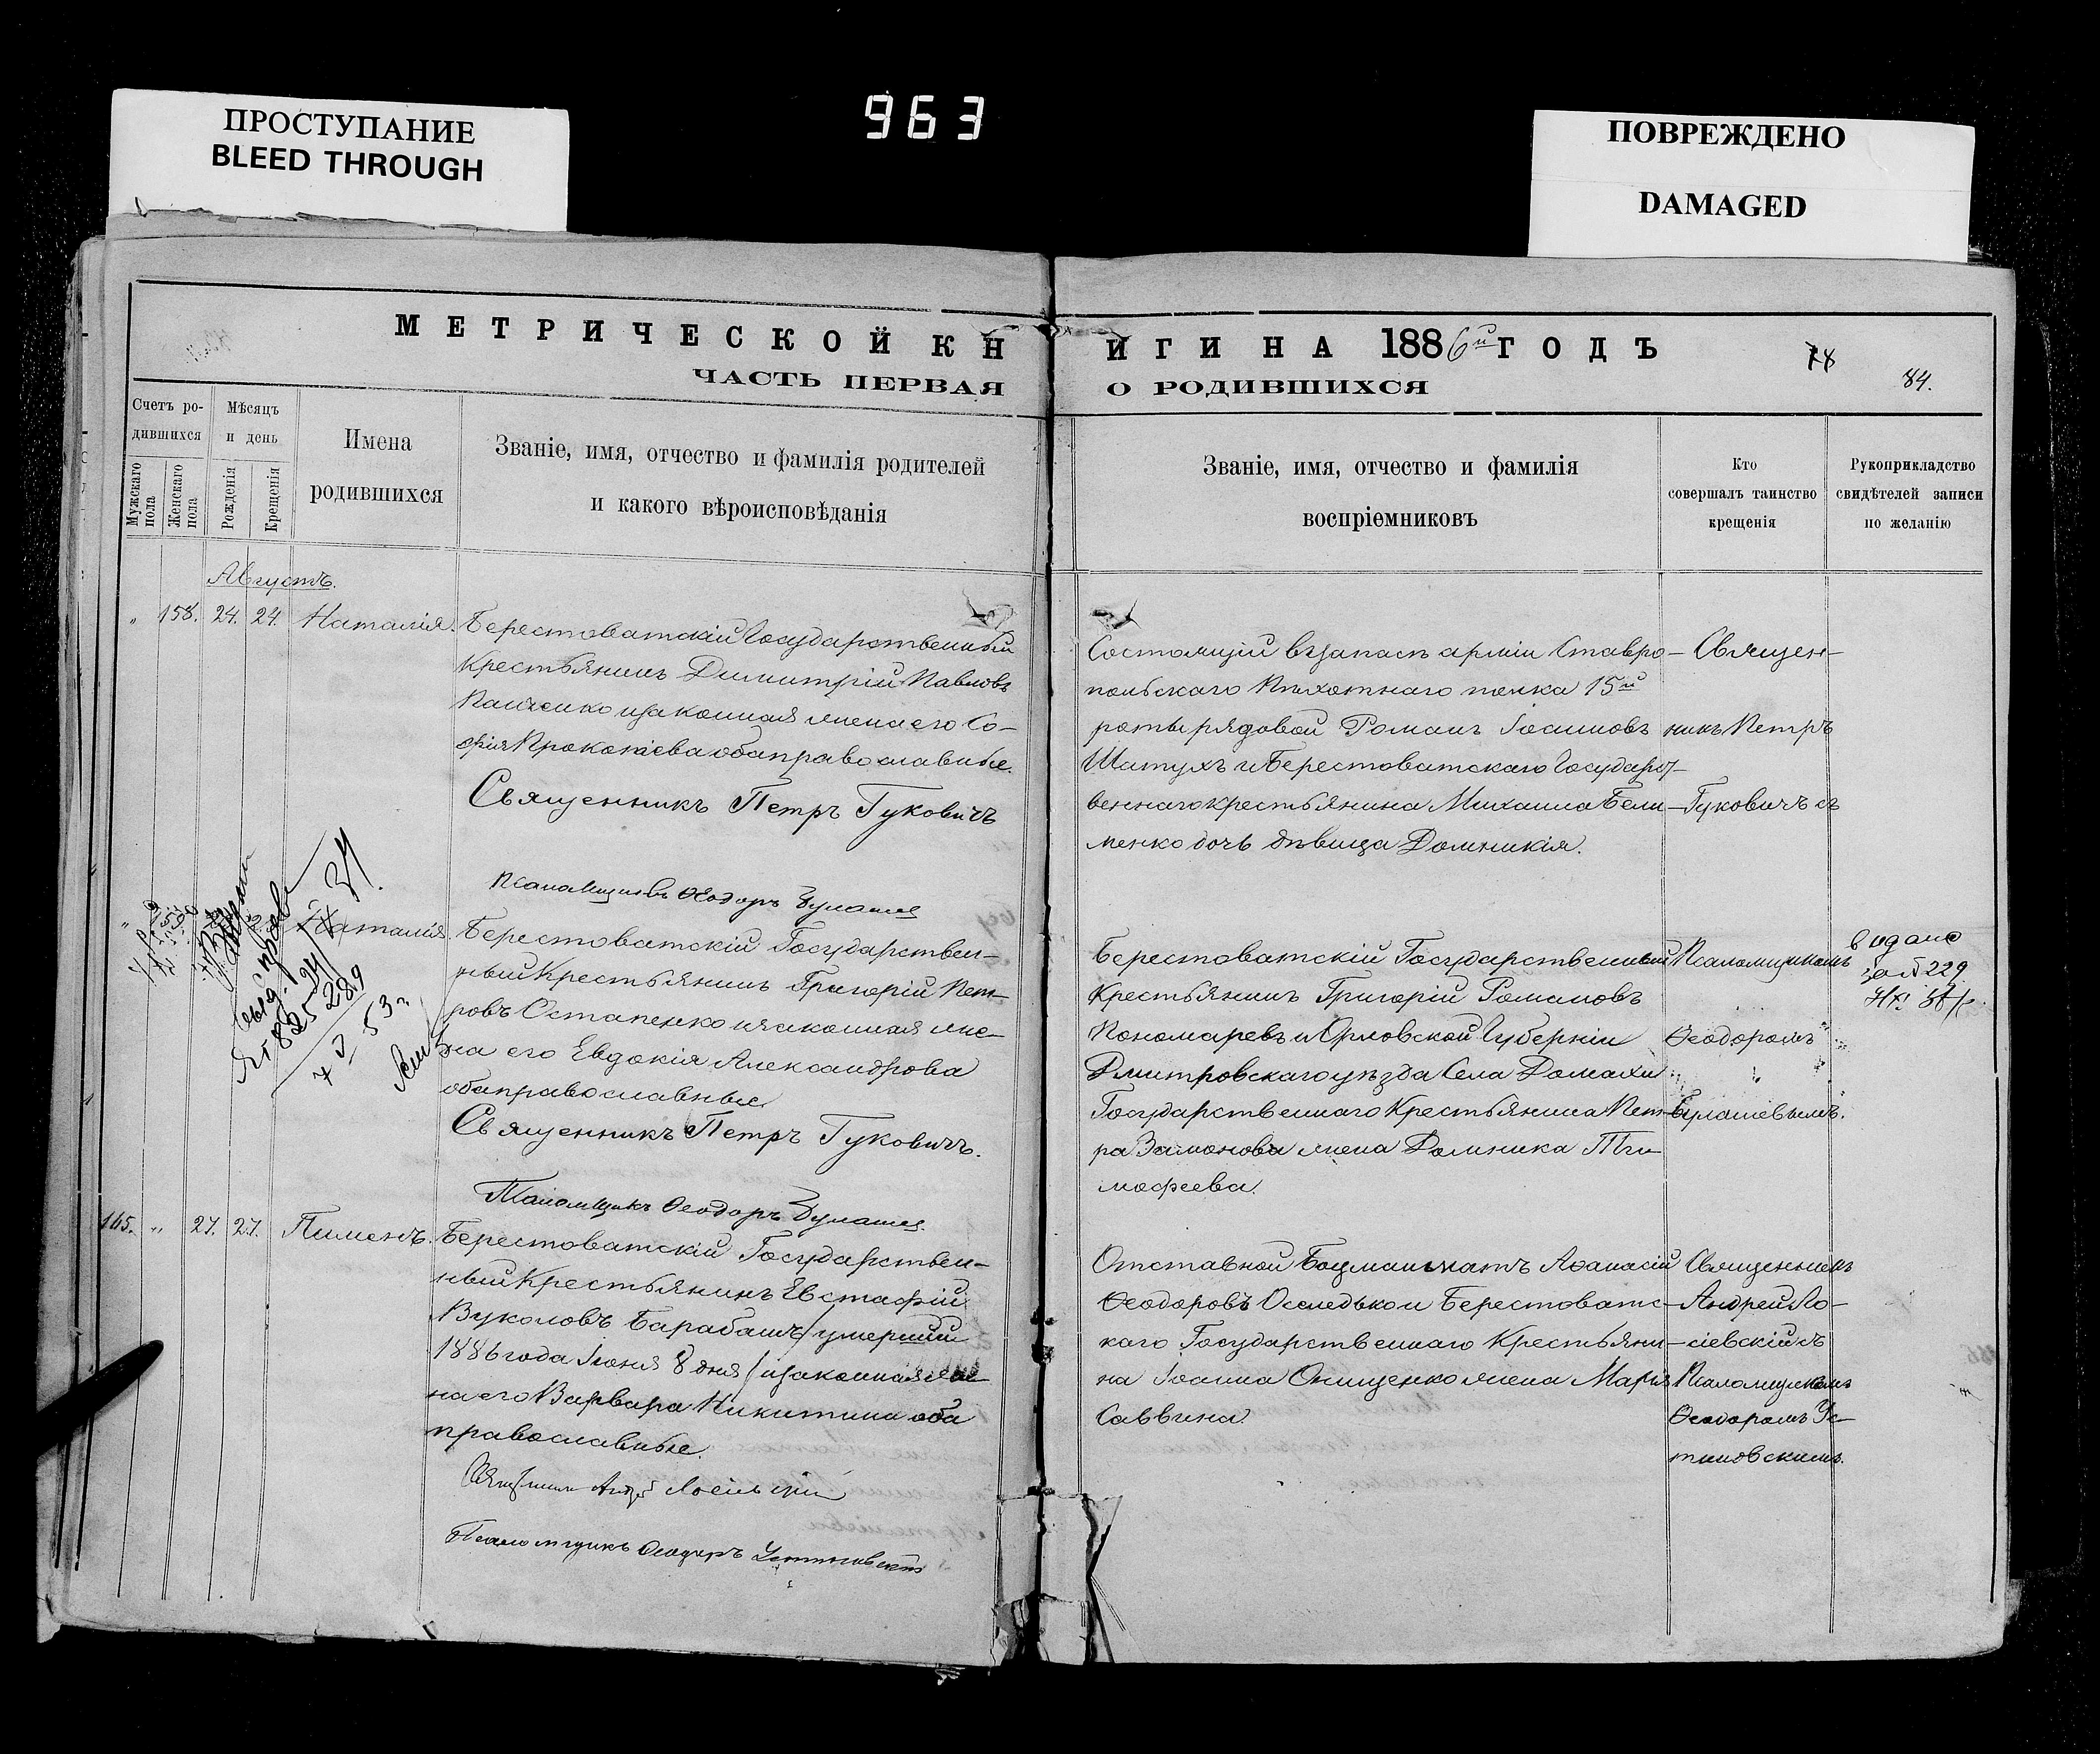 ПРОСТУПАНИЕ
BLEED THROUGH
963
ПОВРЕЖДЕНО
DAMAGED
МЕТРИЧЕСКОЙ КН
ИГИ НА 1886й ГОДЪ
ЧАСТЬ ПЕРВАЯ
О РОДИВШИХСЯ
78
84.
Счетъ ро-
дившихся
Мужскаго пола
Женскаго пола
Мѣсяцъ
и день
Рожденія
Крещенія
Имена
родившихся
Званіе, имя, отчество и фамилія родителей
и какого вѣроисповѣданія
Званіе, имя, отчество и фамилія
воспріемниковъ
Кто
совершалъ таинство
крещенія
Рукоприкладство
свидѣтелей записи
по желанію
Августъ.
„ 158. 24. 24. Наталія.
Берестоватскій Государственный
Крестьянинъ Димитрій Павловъ
Панченко и законная жена его Со-
фія Прокопіева оба православные.
Священникъ Петръ Гуковичъ
Псаломщикъ Ѳеодоръ
Состоящій въ запасѣ арміи Ставро-
польскаго Пѣхотнаго полка 15й
роты рядовой Романъ Іоанновъ
Шатухъ и Берестоватскаго Государст-
веннаго крестьянина Михаила Бели-
менко дочь дѣвица Домникія.
Священ-
никъ Петръ
Гуковичъ съ
Наталія.
Берестоватскій Государствен-
ный Крестьянинъ Григорій Пет-
ровъ Остапенко и законная же-
на его Евдокія Александрова
оба православные
Священникъ Петръ Гуковичъ.
Псаломщикъ Ѳеодоръ
Берестоватскій Государственный
Крестьянинъ Григорій Романовъ
Пономаревъ и Орловской Губерніи
Дмитровскаго уѣзда Села Домахи
Государственнаго Крестьянина Пет-
ра жена Домника Ти-
мофеева.
Псаломщикомъ
Ѳеодоромъ
Булашевымъ.
видано
за № 229
165. „ 27. 27. Пименъ.
Берестоватскій Государствен-
ный Крестьянинъ Евстафій
Вуколовъ Барабашъ /умершій
1886 года Іюня 8 дня/ и законная же-
на его Варвара Никитина оба
православные.
Священникъ Андрей
Псаломщикъ Ѳеодоръ Устиновскій
Отставной Боцманматъ Аѳанасій
Ѳеодоровъ Оследько и Берестоватс-
каго Государственнаго Крестьяни-
на Іоанна Онищенко жена Марія
Саввина
Священникъ
Андрей Ло-
сіевскій съ
Псаломщикомъ
Ѳеодоромъ Ус-
тиновскимъ.